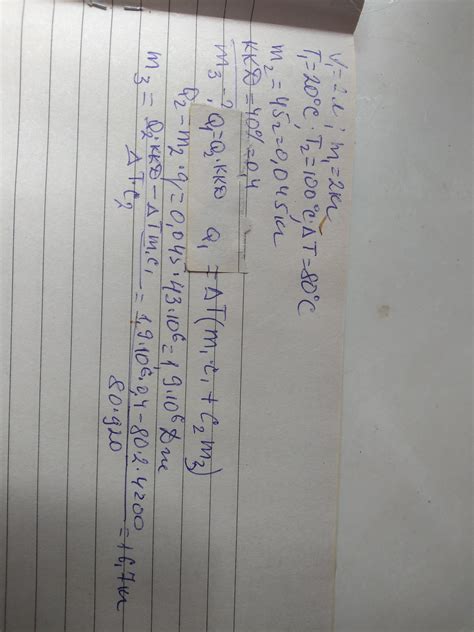 V=2л; m₁=2кг
T₁=20°C; T₂=100°C; ΔT=80°C
m₂=45г=0,045кг
ККД=40%=0,4
m₃-? Q₁=Q₂·ККД Q₁=ΔT(m₁·c₁+c₂m₃)
Q₂=m₂·q=0,045·43·10⁶=1,9·10⁶Дж
m₃=(Q₂·ККД-ΔTm₁c₁)/(ΔT·c₂)=(1,9·10⁶·0,4-80·2·4200)/(80·920)=16,7кг